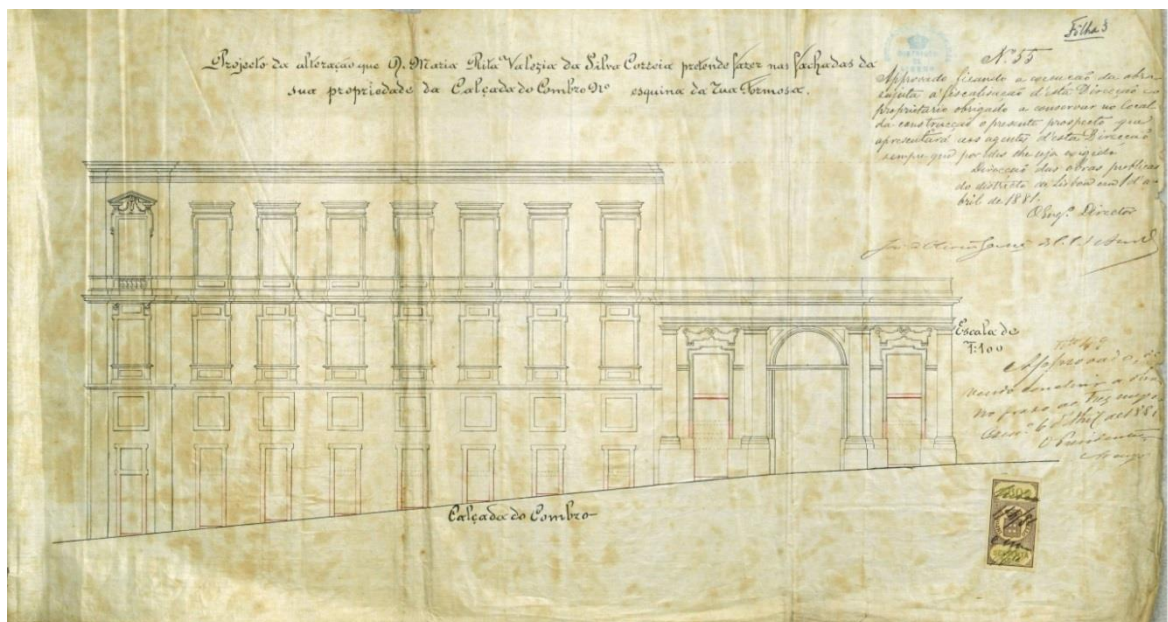 Folha 3
Projecto da alteração que D. Maria Rita Valezia da Silva Correia pretende fazer nas fachadas da
sua propriedade da Calçada do Combro Nº esquina da Rua Formosa.
N.º 55
Approvado ficando a execução da obra
sujeita á fiscalisação d'esta Direcção e o
proprietario obrigado a conservar no local
da construcção o presente prospecto que
apresentará aos agentes d'esta Direcção
sempre que por eles lhe seja exigido
Direcção das obras publicas
do districto de Lisboa em 1 d'a-
bril de 1881.
O Engº Director
Escala de
1:100
Approvado, de-
vendo concluir a obra
no praso de tres mezes
6 d'Abril de 1881
O Presidente
Calçada do Combro